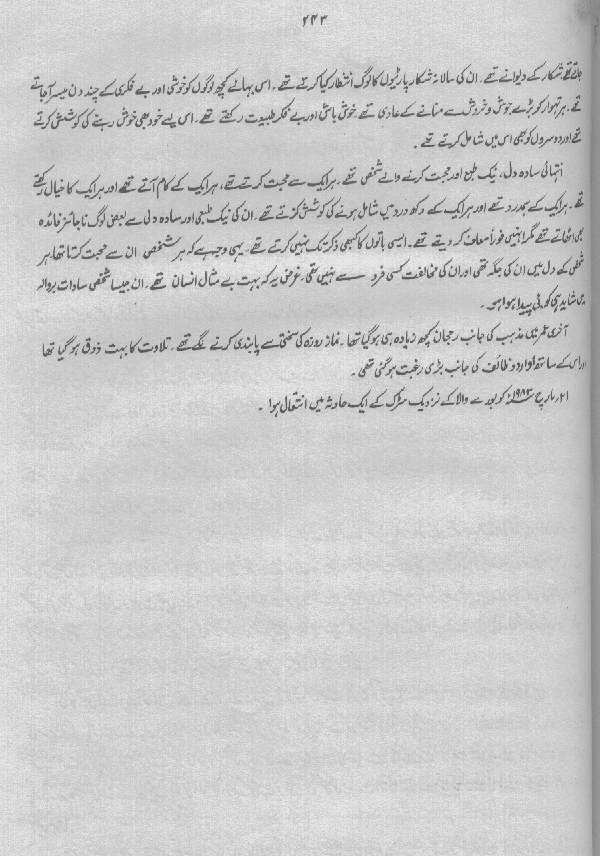 ۲۴۳
جاتے تھے شکار کے دیوانے تھے ۔ ان کی سالانہ شکار پارٹیوں کا لوگ انتظار کیا کرتے تھے ۔ اس بہانے کچھ لوگوں کو خوشی اور بے فکری کے چند دن میسر آجاتے
تھے ۔ ہر تہوار کو بڑے جوش و خروش سے منانے کے عادی تھے ۔ خوش باش اور بے فکر طبیعت رکھتے تھے ۔ اس لیے خود بھی خوش رہنے کی کوشش کرتے
تھے اور دوسروں کو بھی اس میں شامل کرتے تھے ۔
انتہائی سادہ دل ، نیک طبع اور محبت کرنے والے شخص تھے ۔ ہر ایک سے محبت کرتے تھے ، ہر ایک کے کام آتے تھے اور ہر ایک کا خیال رکھتے
تھے ۔ ہر ایک کے ہمدرد تھے اور ہر ایک کے دکھ درد میں شامل ہونے کی کوشش کرتے تھے ۔ ان کی نیک طبعی اور سادہ دلی سے بعض لوگ ناجائز فائدہ
بھی اٹھاتے تھے مگر انہیں فوراً معاف کر دیتے تھے ۔ ایسی باتوں کا کبھی ذکر تک نہیں کرتے تھے ۔ یہی وجہ ہے کہ ہر شخص ان سے محبت کرتا تھا ، ہر
شخص کے دل میں ان کی جگہ تھی اور ان کی مخالفت کسی فرد سے نہیں تھی ۔ غرض یہ کہ بہت بے مثال انسان تھے ۔ ان جیسا شخص سادات بروالہ
میں شاید ہی کوئی پیدا ہوا ہو ۔
آخری عمر میں مذہب کی جانب رجحان کچھ زیادہ ہی ہو گیا تھا ۔ نماز روزہ کی سختی سے پابندی کرنے لگے تھے ۔ تلاوت کا بہت ذوق ہو گیا تھا
اور اس کے ساتھ اوراد و وظائف کی جانب بڑی رغبت ہو گئی تھی ۔
۲۱ ؍ مارچ ۱۹۸۳ء کو بورے والا کے نزدیک سڑک کے ایک حادثہ میں انتقال ہوا ۔